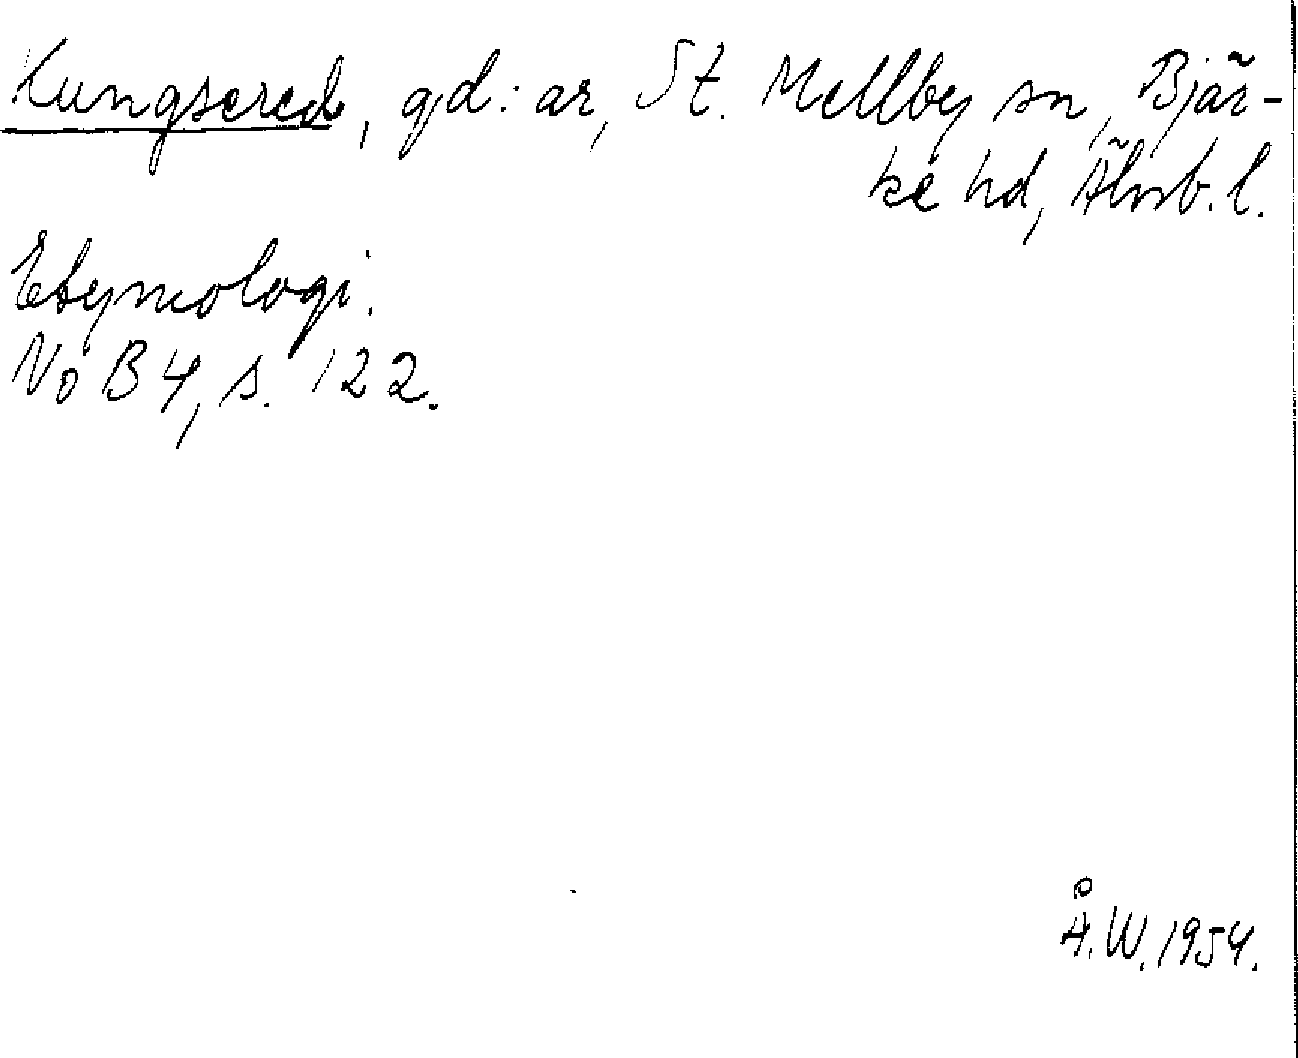 Kungsered, gd:ar, St. Mellby sn, Bjär-
ke hd, Älvsb. l.
Etymologi.
NoB 4, s. 122.
Å.W. 1954.